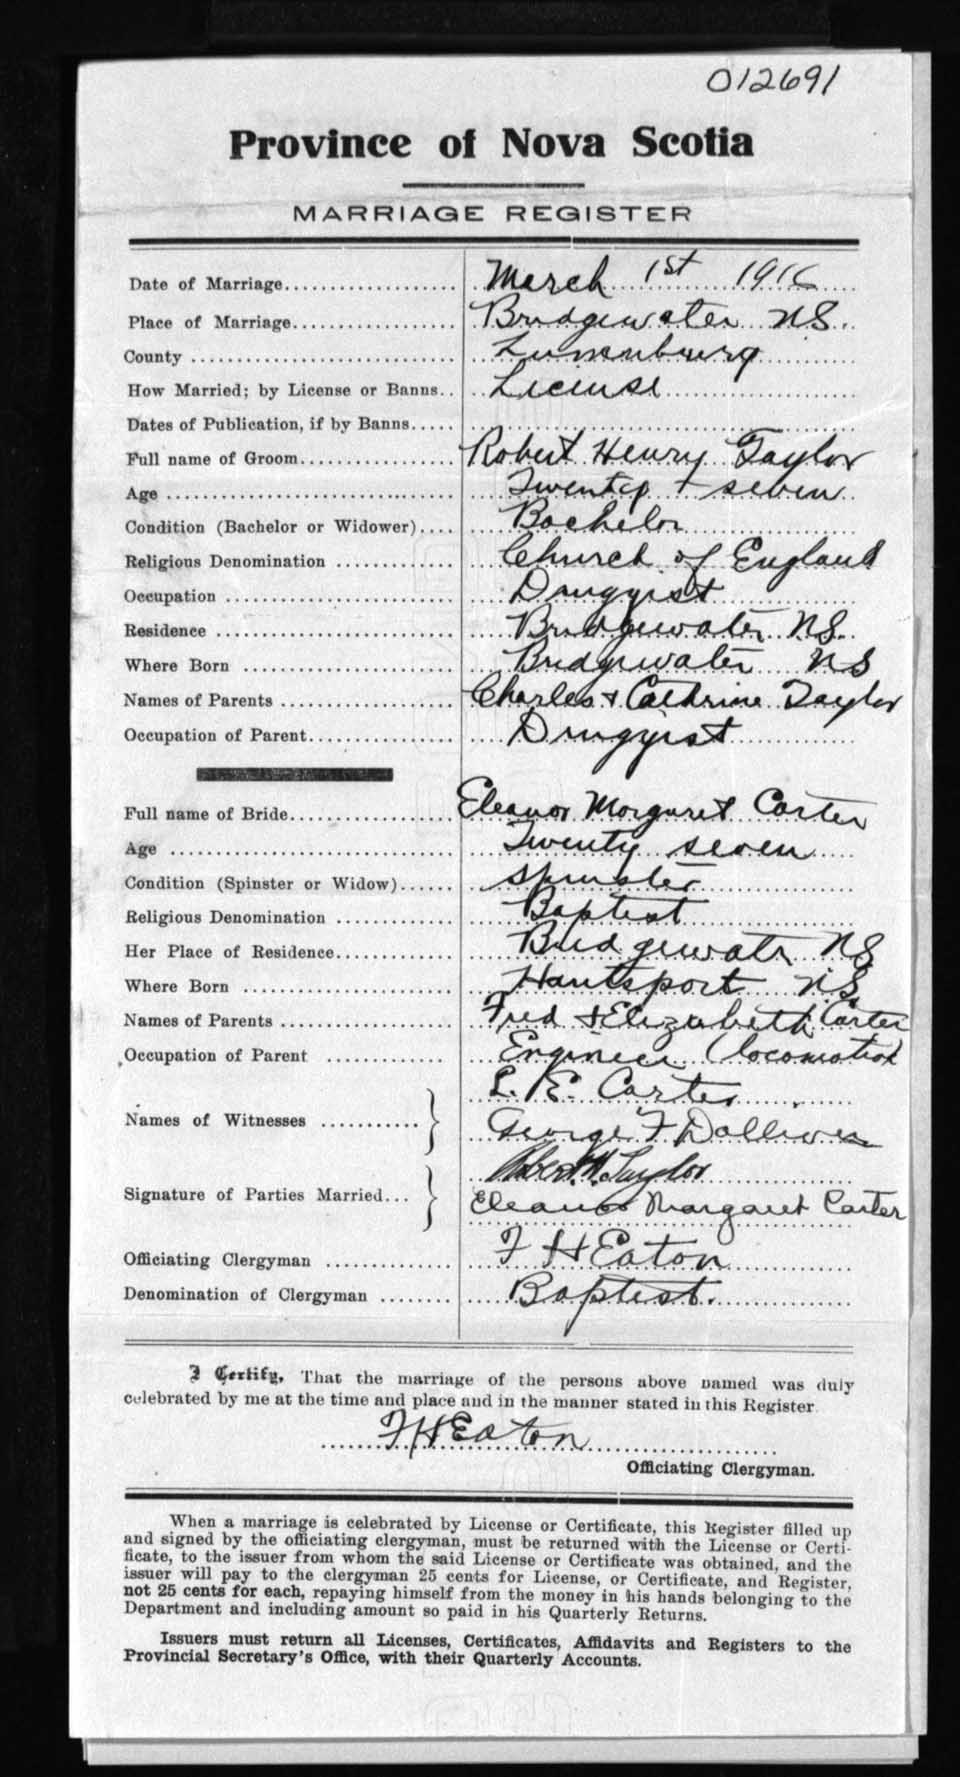 012691
Province of Nova Scotia
MARRIAGE REGISTER
Date of Marriage.................... March 1st 1916
Place of Marriage................... Bridgewater NS.
County ............................. Lunenburg
How Married; by License or Banns.. License
Dates of Publication, if by Banns.....
Full name of Groom.................. Robert Henry Taylor
Age ................................ Twenty + seven
Condition (Bachelor or Widower).... Bachelor
Religious Denomination ............. Church of England
Occupation ......................... Druggist
Residence .......................... Bridgewater NS.
Where Born ......................... Bridgewater NS
Names of Parents ................... Charles + Cathrine Taylor
Occupation of Parent................ Druggist
Full name of Bride................... Eleanor Morgaret Carter
Age ................................ Twenty seven
Condition (Spinster or Widow)...... Spinster
Religious Denomination ............. Baptist
Her Place of Residence............. Bridgewatr NS
Where Born ......................... Hantsport N.S.
Names of Parents ................... Fred + Elizabeth Carter
Occupation of Parent ............. Engineer (locomotive)
Names of Witnesses ........... L. E. Carter
George F Dolliver
Signature of Parties Married... Robert H. Taylor
Eleanor Margaret Carter
Officiating Clergyman .............. F H Eaton
Denomination of Clergyman ........ Baptist.
I Certify, That the marriage of the persons above named was duly
celebrated by me at the time and place and in the manner stated in this Register.
F H Eaton
Officiating Clergyman.
When a marriage is celebrated by License or Certificate, this Register filled up
and signed by the officiating clergyman, must be returned with the License or Certi-
ficate, to the issuer from whom the said License or Certificate was obtained, and the
issuer will pay to the clergyman 25 cents for License, or Certificate, and Register,
not 25 cents for each, repaying himself from the money in his hands belonging to the
Department and including amount so paid in his Quarterly Returns.
Issuers must return all Licenses, Certificates, Affidavits and Registers to the
Provincial Secretary's Office, with their Quarterly Accounts.